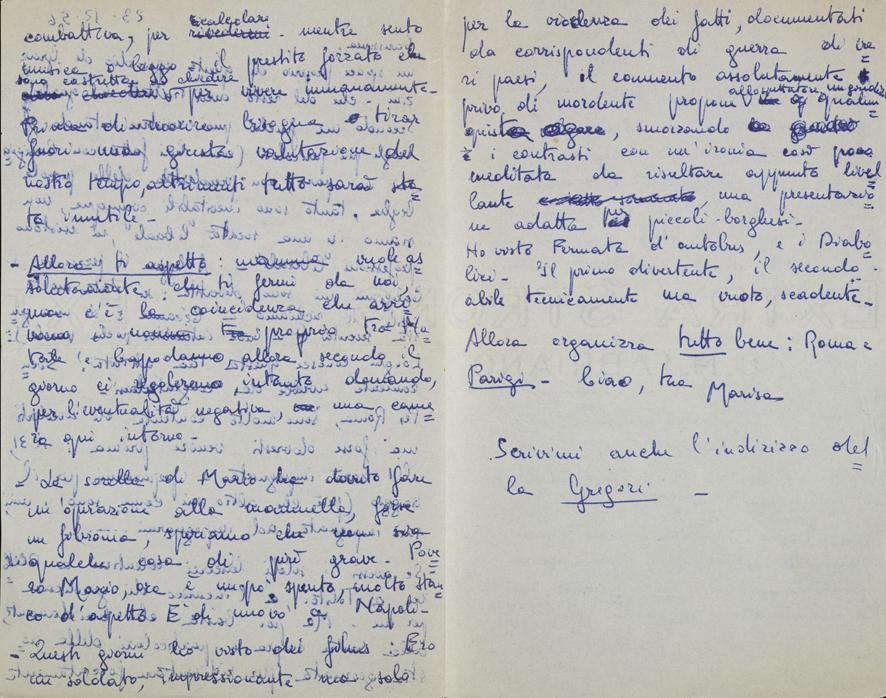 combattiva, per scalgolarj - mentre sento
musica o leggo, il prestito forzato che
sono costretta a chiedere per vivere umanamente -
Prima di introdirmi bisogna tirar
fuori una giusta valutazione del
nostro tempo, altrimenti tutto sarà sta
to inutile -
- Allora ti aspetto: mamma vuole as
solutamente che ti fermi da noi,
c'è la coincidenza che
proprio tra
Natale e Capodanno allora secondo il
giorno ci regoleremo intanto domando,
per l'eventualità negativa, una came
ra qui intorno -
La sorella di Mario ha dovuto fare
un'operazione alla mammella, forse
un fibroma, speriamo che non sia
qualche cosa di più grave. Pove
ro Mario, ora è un po' spento, molto stan
co d'aspetto. È di nuovo a Napoli -
- Questi giorni ho visto dei films: Ero
un soldato, impressionante ma solo
per la violenza dei fatti, documentati
da corrispondenti di guerra di va
ri paesi, il commento assolutamente
privo di mordente propone
smorzando
i contrasti con un'ironia così poco
meditata da risultare appunto livel
lante, una presentazio
ne adatta per piccoli-borghesi -
Ho visto Fermata d'autobus, e i Diabo
lici - Il primo divertente, il secondo
abile tecnicamente ma vuoto, scadente -
Allora organizza tutto bene: Roma e
Parigi - Ciao, tua
Marisa
Scrivimi anche l'indirizzo del
la Gregori -